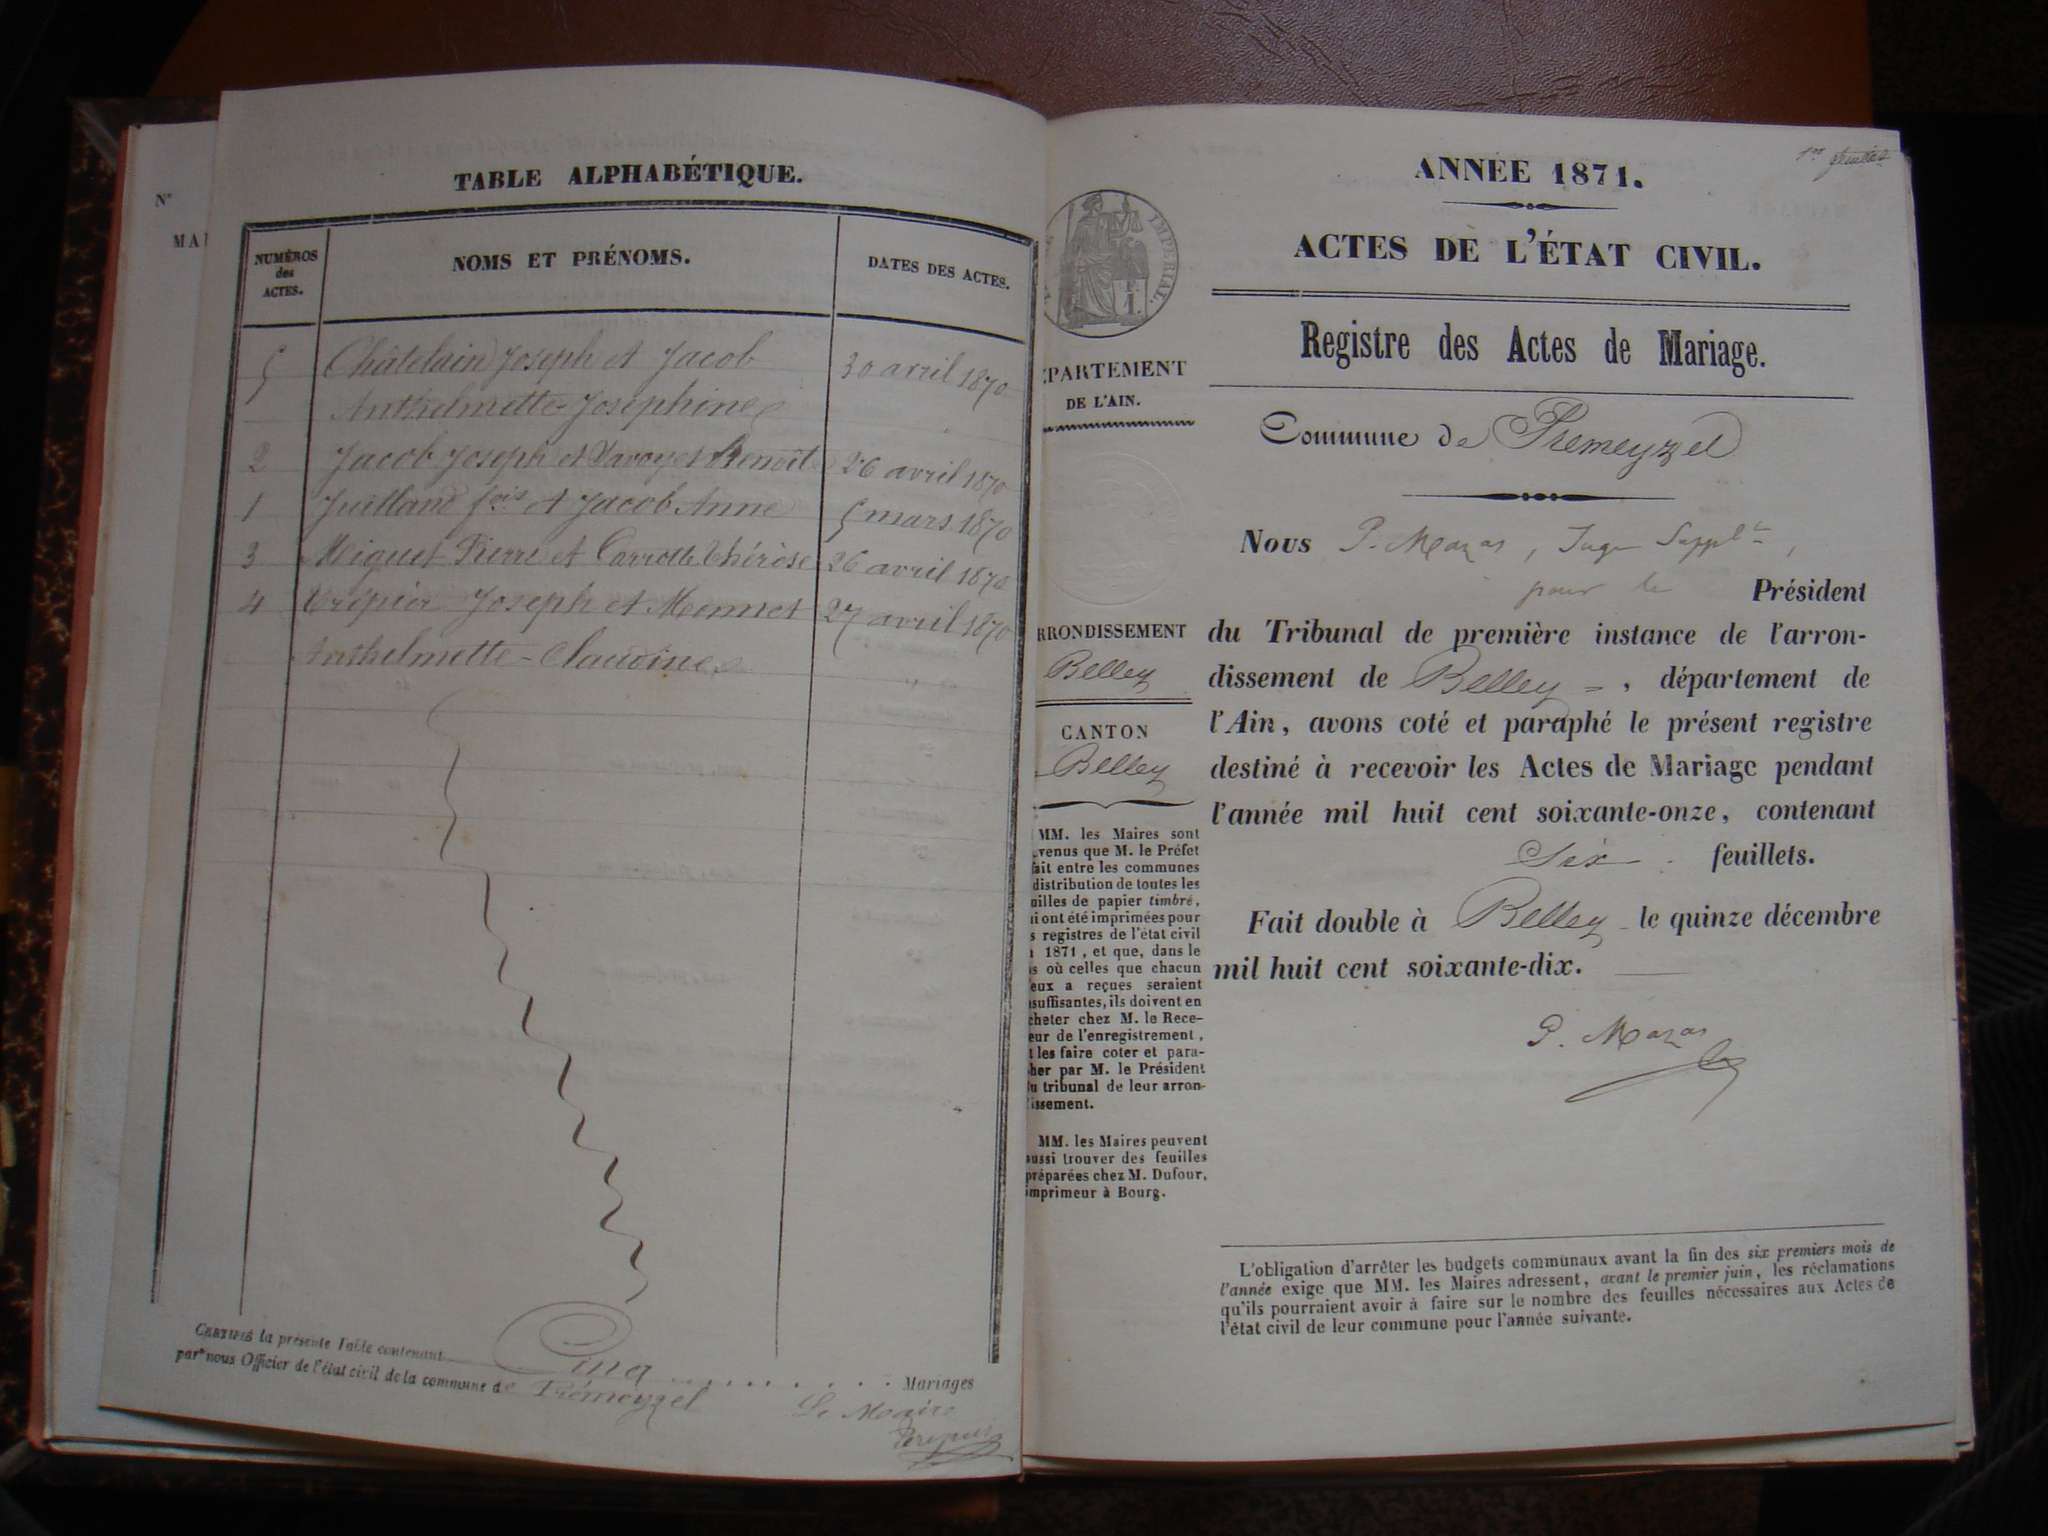 N°
MAI
TABLE ALPHABÉTIQUE.
NUMÉROS
des
ACTES.
NOMS ET PRÉNOMS.
DATES DES ACTES.
5 Châtelain Joseph et Jacob 30 avril 1870
Anthelmette-Joséphine
2 Jacob Joseph et Benoîte 26 avril 1870
1 Juilland fois et Jacob Anne 5 mars 1870
3 Miguet Pierre et Thérèse 26 avril 1870
4 Trépier Joseph et 27 avril 1870
Anthelmette-Claudine
CERTIFIÉ la présente Table contenant Cinq Mariages
par nous Officier de l'état civil de la commune de Prémeyzel
Le Maire
Trepier
1er feuillet
ANNÉE 1871.
ACTES DE L'ÉTAT CIVIL.
Registre des Actes de Mariage.
Commune de Premeyzel
Nous P. Mazas, Juge Suppl.t,
pour le Président
du Tribunal de première instance de l'arron-
dissement de Belley, département de
l'Ain, avons coté et paraphé le présent registre
destiné à recevoir les Actes de Mariage pendant
l'année mil huit cent soixante-onze, contenant
Six feuillets.
Fait double à Belley le quinze décembre
mil huit cent soixante-dix.
P. Mazas
L'obligation d'arrêter les budgets communaux avant la fin des six premiers mois de
l'année exige que MM. les Maires adressent, avant le premier juin, les réclamations
qu'ils pourraient avoir à faire sur le nombre des feuilles nécessaires aux Actes de
l'état civil de leur commune pour l'année suivante.
IMPÉRIAL.
1.
ÉPARTEMENT
DE L'AIN.
RRONDISSEMENT
Belley
CANTON
Belley
MM. les Maires sont
venus que M. le Préfet
fait entre les communes
distribution de toutes les
uilles de papier timbré,
i ont été imprimées pour
s registres de l'état civil
1871, et que, dans le
s où celles que chacun
eux a reçues seraient
suffisantes, ils doivent en
cheter chez M. le Rece-
eur de l'enregistrement,
les faire coter et para-
her par M. le Président
u tribunal de leur arron-
issement.
MM. les Maires peuvent
ussi trouver des feuilles
préparées chez M. Dufour,
imprimeur à Bourg.